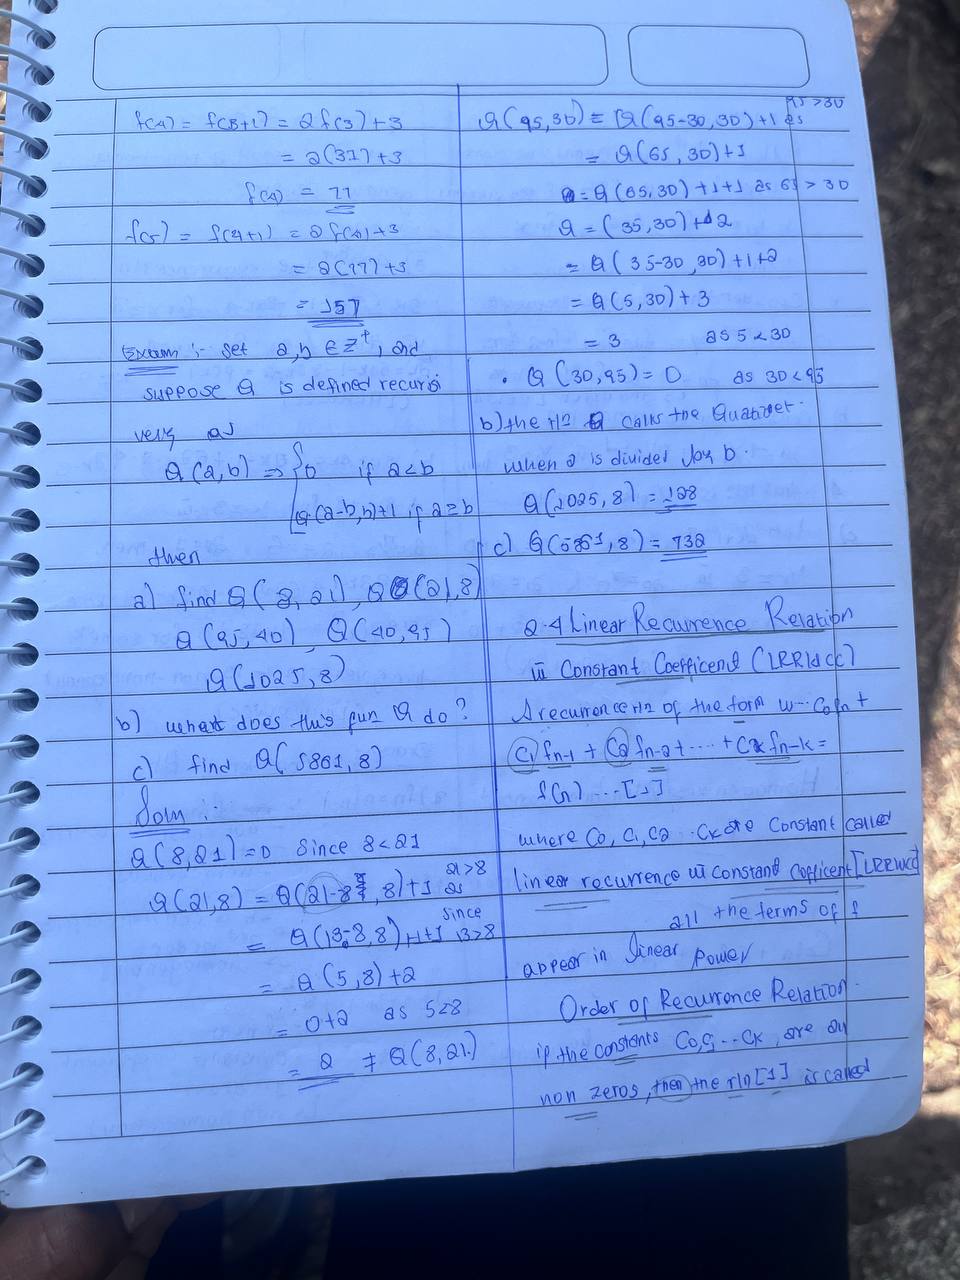 f(4) = f(3+1) = 2f(3)+3
= 2(37)+3
f(4) = 77
f(5) = f(4+1) = 2f(4)+3
= 2(77)+3
= 157
Exam :- set a,b ∈ Z⁺, and
suppose Q is defined recursi
very as
Q(a,b) => {0 if a<b
Q(a-b,b)+1 if a≥b
then
a) find Q(8,21), Q(21,8)
Q(95,40) Q(40,95)
Q(1025,8)
b) what does this fun Q do?
c) find Q(5861,8)
Soln :
Q(8,21)=0 since 8<21
Q(21,8) = Q(21-8,8)+1 as 21>8
= Q(13-8,8)+1+1 since 13>8
= Q(5,8)+2
= 0+2 as 5<8
= 2 ≠ Q(8,21)
Q(95,30) = Q(95-30,30)+1 as 95>30
= Q(65,30)+1
= Q(65,30)+1+1 as 65>30
Q = (35,30)+2
= Q(35-30,30)+1+2
= Q(5,30)+3
= 3 as 5<30
• Q(30,95)=0 as 30<95
b) the r/n Q calls the Quatidet.
when a is divided by b.
Q(1025,8)=128
c) Q(5861,8)=732
2.4 Linear Recurrence Relation
w Constant Coefficend (LRRWCC)
A recurrence r/n of the form C₀fn+
C₁fn-1 + C₂fn-2+....+Ckfn-k=
f(n)...[1]
where C₀, C₁, C₂..Ck are Constant called
linear recurrence w constand Cofficent [LRRWCC]
all the terms of f
appear in linear power
Order of Recurrence Relation.
if the constants C₀,C₁..Ck, are all
non zeros, then the r/n [1] is called